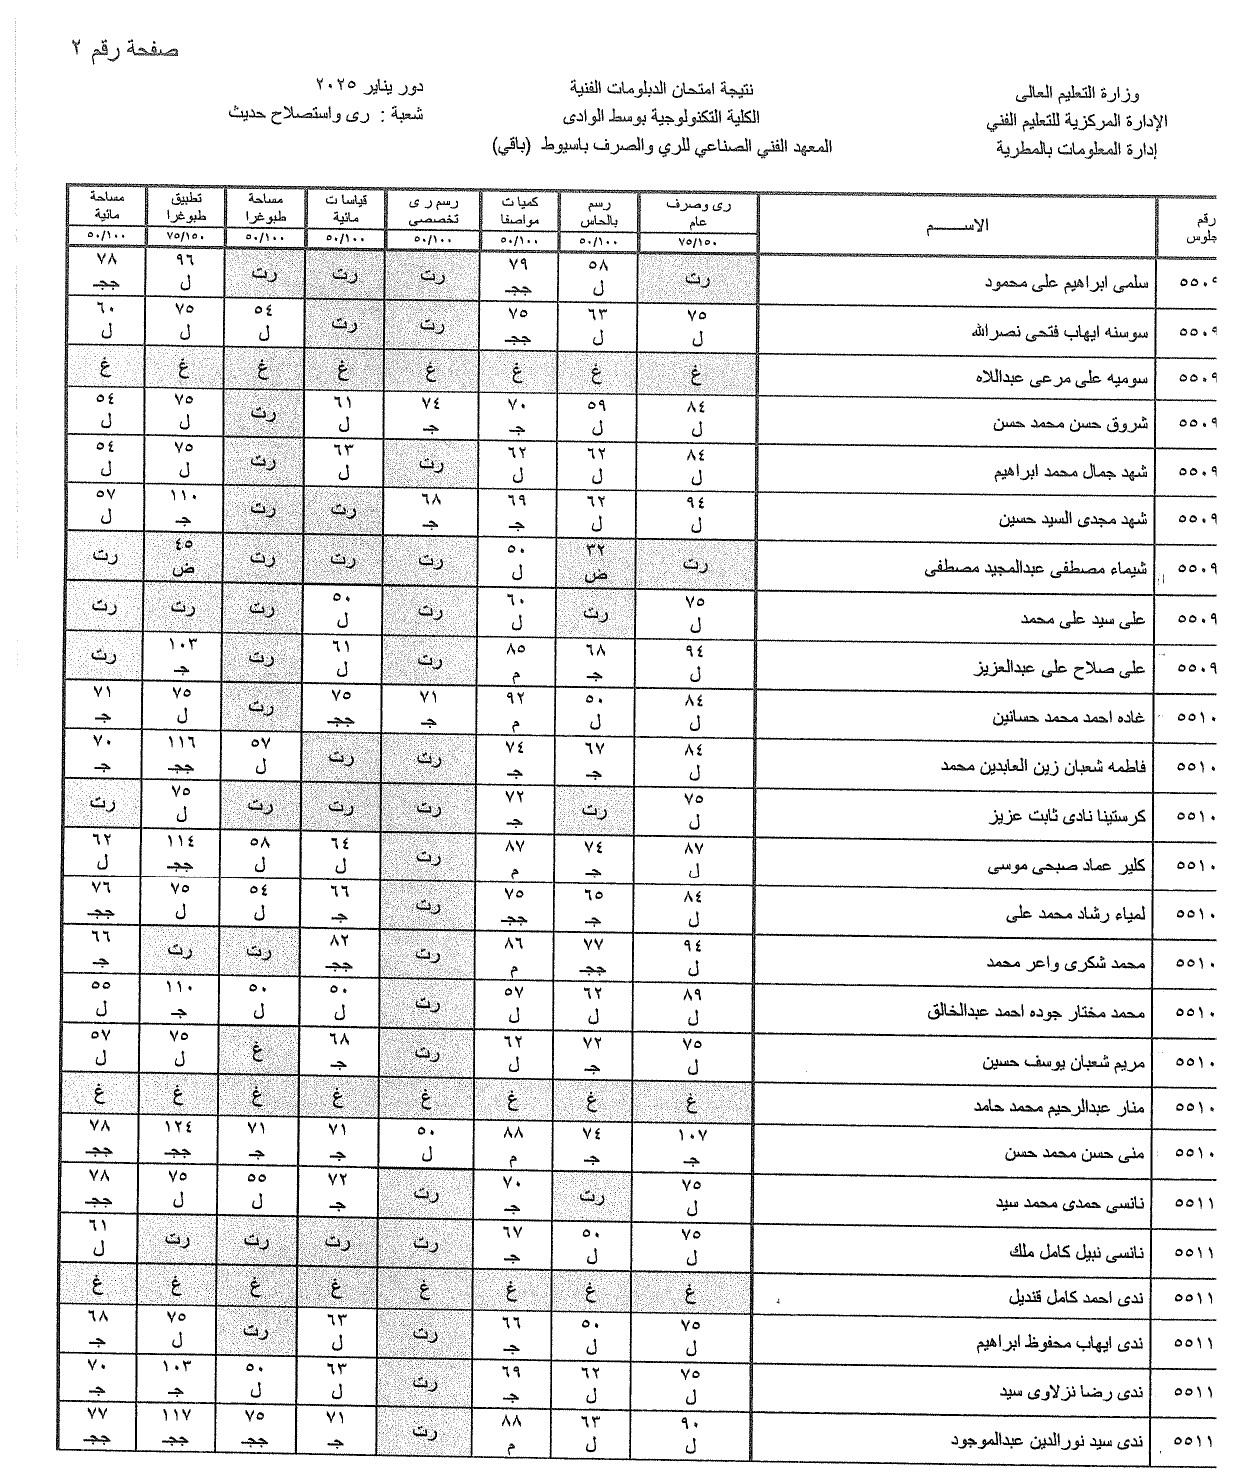 صفحة رقم ٢
وزارة التعليم العالى
الإدارة المركزية للتعليم الفني
إدارة المعلومات بالمطرية
نتيجة امتحان الدبلومات الفنية
الكلية التكنولوجية بوسط الوادى
المعهد الفني الصناعي للري والصرف باسيوط (باقي)
دور يناير ٢٠٢٥
شعبة : رى واستصلاح حديث
رقم جلوس | الاســـــم | رى وصرف عام ٧٥/١٥٠ | رسم بالحاس ٥٠/١٠٠ | كميات مواصفا ٥٠/١٠٠ | رسم رى تخصصى ٥٠/١٠٠ | قياسات مائية ٥٠/١٠٠ | مساحة طبوغرا ٥٠/١٠٠ | تطبيق طبوغرا ٧٥/١٥٠ | مساحة مائية ٥٠/١٠٠
٥٥٠٩ سلمى ابراهيم على محمود | رت | ٥٨ ل | ٧٩ جج | رت | رت | رت | ٩٦ ل | ٧٨ جج
٥٥٠٩ سوسنه ايهاب فتحى نصرالله | ٧٥ ل | ٦٣ ل | ٧٥ جج | رت | رت | ٥٤ ل | ٧٥ ل | ٦٠ ل
٥٥٠٩ سوميه على مرعى عبداللاه | غ | غ | غ | غ | غ | غ | غ | غ
٥٥٠٩ شروق حسن محمد حسن | ٨٤ ل | ٥٩ ل | ٧٠ ج | ٧٤ ج | ٦١ ل | رت | ٧٥ ل | ٥٤ ل
٥٥٠٩ شهد جمال محمد ابراهيم | ٨٤ ل | ٦٢ ل | ٦٢ ل | رت | ٦٣ ل | رت | ٧٥ ل | ٥٤ ل
٥٥٠٩ شهد مجدى السيد حسين | ٩٤ ل | ٦٢ ل | ٦٩ ج | ٦٨ ج | رت | رت | ١١٠ ج | ٥٧ ل
٥٥٠٩ شيماء مصطفى عبدالمجيد مصطفى | رت | ٣٢ ض | ٥٠ ل | رت | رت | رت | ٤٥ ض | رت
٥٥٠٩ على سيد على محمد | ٧٥ ل | رت | ٦٠ ل | رت | ٥٠ ل | رت | رت | رت
٥٥٠٩ على صلاح على عبدالعزيز | ٩٤ ل | ٦٨ ج | ٨٥ م | رت | ٦١ ل | رت | ١٠٣ ج | رت
٥٥١٠ غاده احمد محمد حسانين | ٨٤ ل | ٥٠ ل | ٩٢ م | ٧١ ج | ٧٥ جج | رت | ٧٥ ل | ٧١ ج
٥٥١٠ فاطمه شعبان زين العابدين محمد | ٨٤ ل | ٦٧ ج | ٧٤ ج | رت | رت | ٥٧ ل | ١١٦ جج | ٧٠ ج
٥٥١٠ كرستينا نادى ثابت عزيز | ٧٥ ل | رت | ٧٢ ج | رت | رت | رت | ٧٥ ل | رت
٥٥١٠ كلير عماد صبحى موسى | ٨٧ ل | ٧٤ ج | ٨٧ م | رت | ٦٤ ل | ٥٨ ل | ١١٤ جج | ٦٢ ل
٥٥١٠ لمياء رشاد محمد على | ٨٤ ل | ٦٥ ج | ٧٥ جج | رت | ٦٦ ج | ٥٤ ل | ٧٥ ل | ٧٦ جج
٥٥١٠ محمد شكرى واعر محمد | ٩٤ ل | ٧٧ جج | ٨٦ م | رت | ٨٢ جج | رت | رت | ٦٦ ج
٥٥١٠ محمد مختار جوده احمد عبدالخالق | ٨٩ ل | ٦٢ ل | ٥٧ ل | رت | ٥٠ ل | ٥٠ ل | ١١٠ ج | ٥٥ ل
٥٥١٠ مريم شعبان يوسف حسين | ٧٥ ل | ٧٢ ج | ٦٢ ل | رت | ٦٨ ج | غ | ٧٥ ل | ٥٧ ل
٥٥١٠ منار عبدالرحيم محمد حامد | غ | غ | غ | غ | غ | غ | غ | غ
٥٥١٠ منى حسن محمد حسن | ١٠٧ ج | ٧٤ ج | ٨٨ م | ٥٠ ل | ٧١ ج | ٧١ ج | ١٢٤ جج | ٧٨ جج
٥٥١١ نانسى حمدى محمد سيد | ٧٥ ل | رت | ٧٠ ج | رت | ٧٢ ج | ٥٥ ل | ٧٥ ل | ٧٨ جج
٥٥١١ نانسى نبيل كامل ملك | ٧٥ ل | ٥٠ ل | ٦٧ ج | رت | رت | رت | رت | ٦١ ل
٥٥١١ ندى احمد كامل قنديل | غ | غ | غ | غ | غ | غ | غ | غ
٥٥١١ ندى ايهاب محفوظ ابراهيم | ٧٥ ل | ٥٠ ل | ٦٦ ج | رت | ٦٣ ل | رت | ٧٥ ل | ٦٨ ج
٥٥١١ ندى رضا نزلاوى سيد | ٧٥ ل | ٦٢ ل | ٦٩ ج | رت | ٦٣ ل | ٥٠ ل | ١٠٣ ج | ٧٠ ج
٥٥١١ ندى سيد نورالدين عبدالموجود | ٩٠ ل | ٦٣ ل | ٨٨ م | رت | ٧١ ج | ٧٥ جج | ١١٧ جج | ٧٧ جج